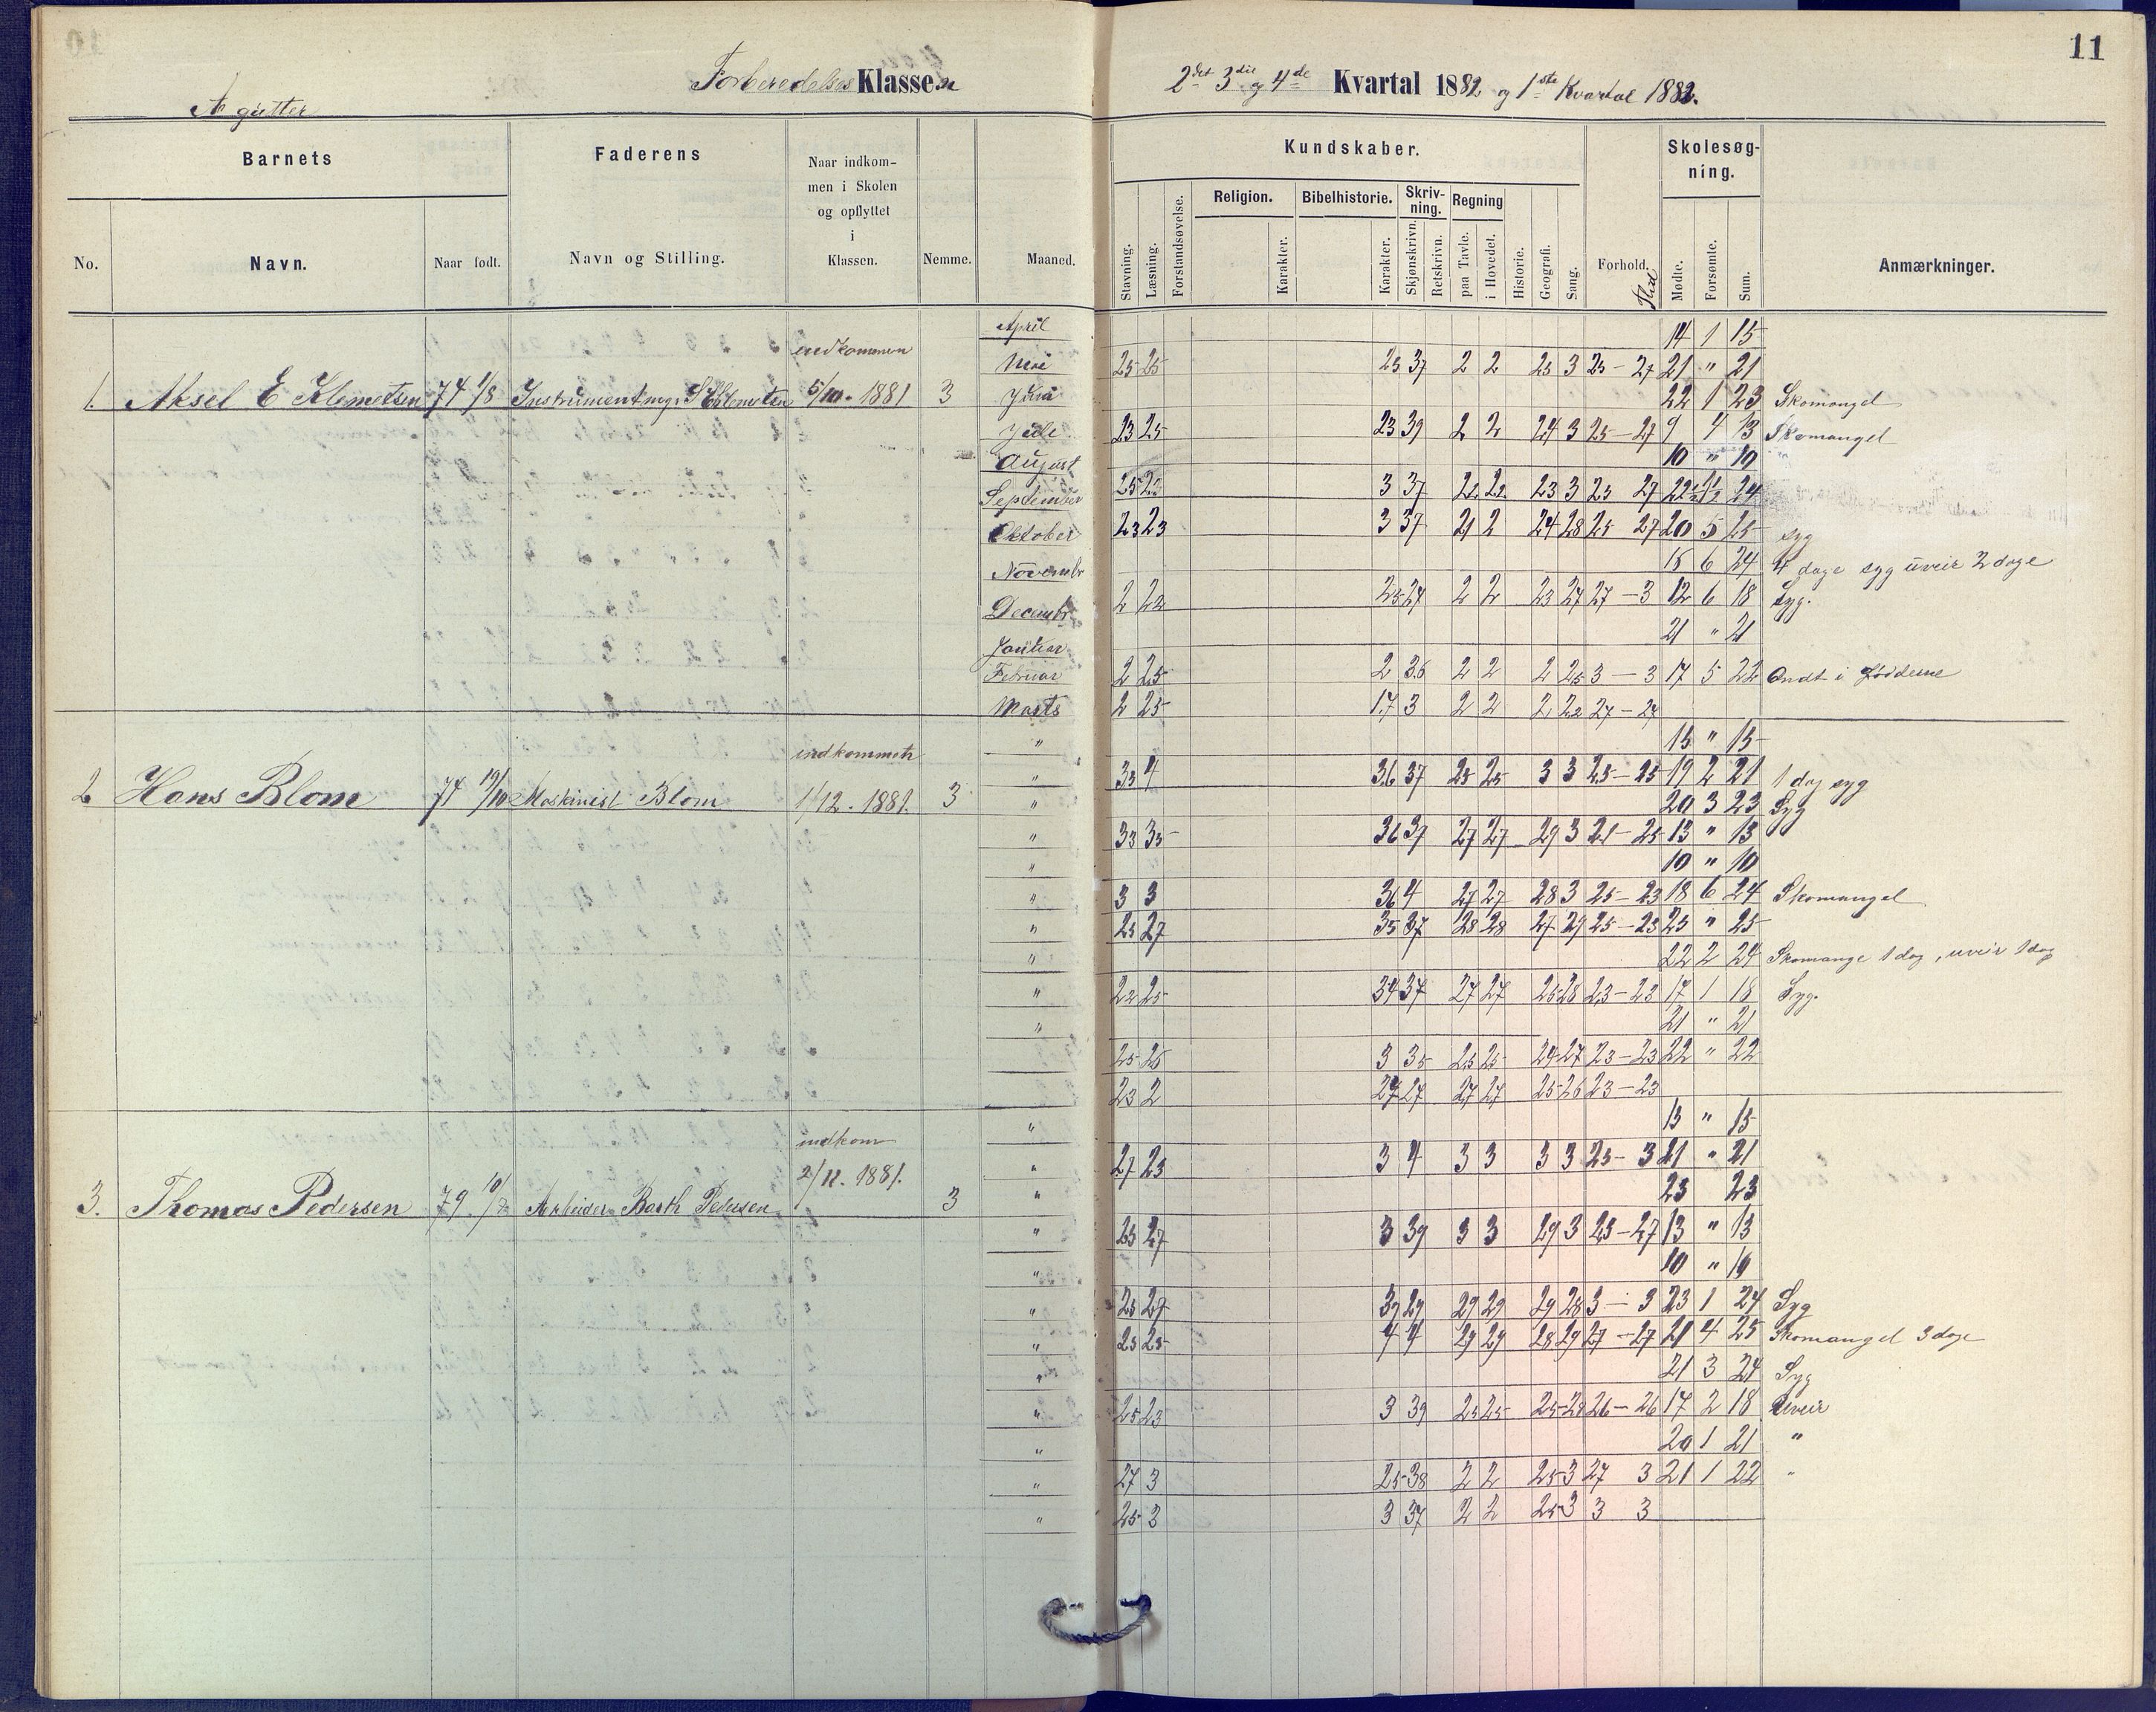 11
Forberedelses Klassen
2det 3die og 4de Kvartal 1882 og 1ste Kvartal 1883.
A gutter
Barnets
Faderens
Naar indkom-
men i Skolen
og opflyttet
i
Klassen.
No.
Navn.
Naar født.
Navn og Stilling.
Nemme.
Maaned.
Kundskaber.
Skolesøg-
ning.
Religion.
Bibelhistorie.
Skriv-
ning.
Regning
Stavning.
Læsning.
Forstandsøvelse.
Karakter.
Karakter.
Skjønskrivn.
Retskrivn.
paa Tavle.
i Hovedet.
Historie.
Geografi.
Sang.
Forhold.
Flid
Mødte.
Forsømte.
Sum.
Anmærkninger.
April 14 1 15
indkommen
Mai 25 25 25 37 2 2 25 3 25 - 27 21 " 21
1. Aksel E Klemetsen 74 1/8 Instrumentmgr. 5/10. 1881 3 Juni 22 1 23 Skomangel
Juli 23 25 23 39 2 2 24 3 25 - 27 9 4 13 Skomangel
August 10 " 10
September 25 3 37 22 22 23 3 25 27 22½ 1½ 24
Oktober 23 23 3 37 21 2 24 28 25 27 20 5 25 syg
November 18 6 24 4 dage syg uveir 2 dage
December 2 22 25 27 2 2 23 27 27 - 3 12 6 18 Syg.
Januar 21 " 21
Februar 2 25 2 36 2 2 2 25 3 - 3 17 5 22 Ondt i Fødderne
Marts 2 25 17 3 2 2 2 22 27 - 27
" 15 " 15
indkommen
" 33 4 36 37 25 25 3 3 25 - 25 19 2 21 1 dag syg
2 Hans Blom 74 19/10 Maskinist Blom 1/12. 1881. 3 " 20 3 23 Syg
" 33 33 36 37 27 27 29 3 21 - 25 13 " 13
" 10 " 10
" 3 3 36 4 27 27 28 3 25 - 23 18 6 24 Skomangel
" 25 27 35 37 28 28 27 29 25 - 23 25 " 25
" 22 2 24 Skomange 1 dag, uveir 1 dag
" 22 25 34 37 27 27 25 28 23 - 23 17 1 18 Syg.
" 21 " 21
25 26 3 35 25 25 24 27 23 - 23 22 " 22
23 2 27 27 27 27 25 26 23 - 23
" 15 " 15
indkom
2/12. 1881.
" 27 23 3 4 3 3 3 3 25 - 3 21 " 21
3. Thomas Pedersen Arbeider Barth Pedersen 3 " 23 23
" 25 27 3 39 3 3 29 3 25 - 27 13 " 13
" 10 " 10
" 23 27 39 29 29 29 29 28 3 - 3 23 1 24 Syg
" 25 25 4 4 29 29 28 29 27 - 27 21 4 25 Skomangel 3 dage
" 21 3 24 Syg
" 25 23 3 39 25 25 25 28 26 - 26 17 2 18 Uveir
" 20 1 21 "
" 27 3 25 38 2 2 25 3 27 3 21 1 22 "
" 25 3 3 37 2 2 25 3 3 3